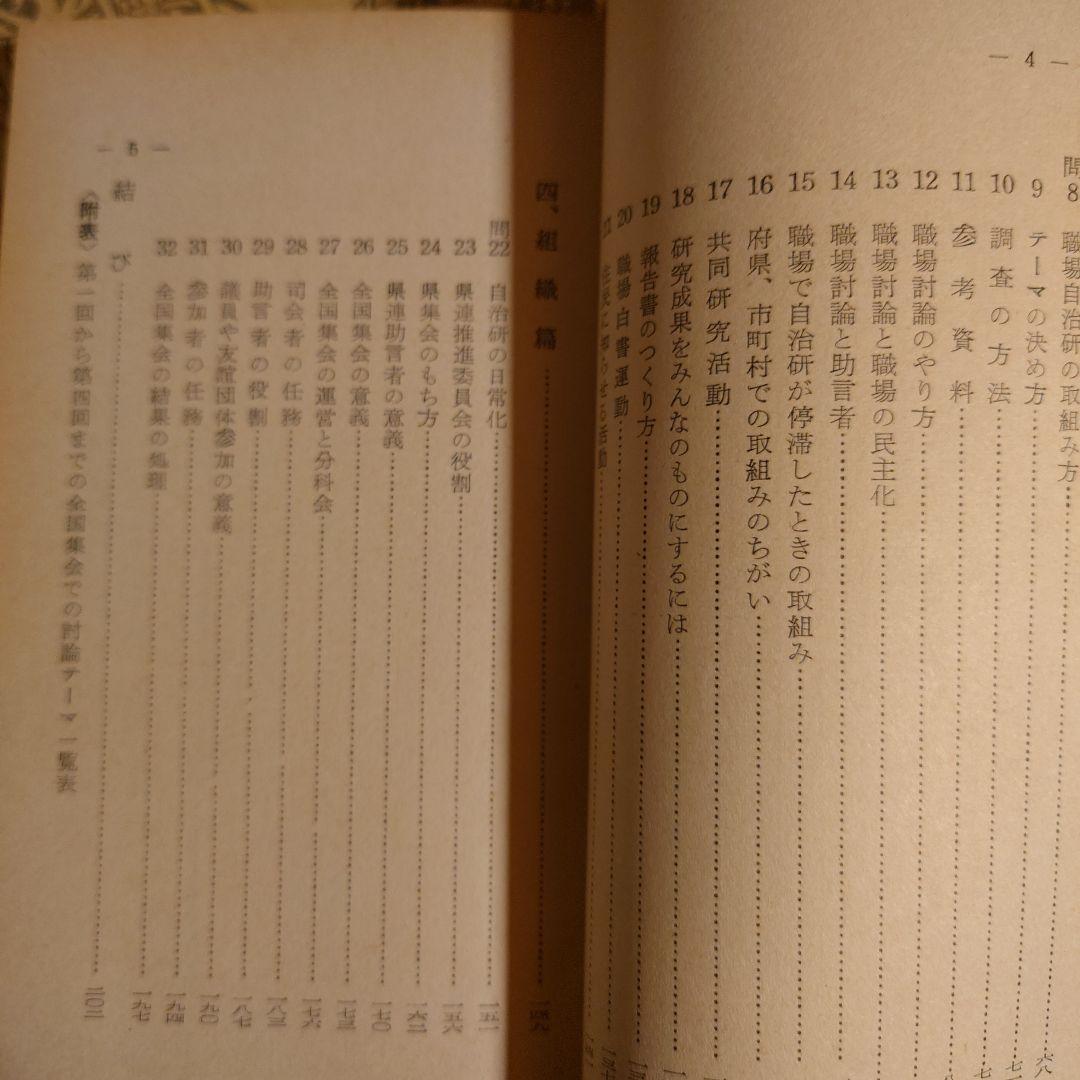 — 4 —
問8 職場自治研の取組み方……六八
9 テーマの決め方……
10 調査の方法……
11 参考資料……
12 職場討論のやり方……
13 職場討論と職場の民主化……
14 職場討論と助言者……
15 職場で自治研が停滞したときの取組み……
16 府県、市町村での取組みのちがい……
17 共同研究活動……
18 研究成果をみんなのものにするには……
19 報告書のつくり方……
20 職場白書運動……
21 住民に知らせる活動……
— 5 —
四、組織篇……一四九
問22 自治研の日常化……一五一
23 県連推進委員会の役割……一五六
24 県集会のもち方……一六二
25 県連助言者の意義……一七〇
26 全国集会の意義……一七三
27 全国集会の運営と分科会……一七六
28 司会者の任務……一八三
29 助言者の役割……一八七
30 議員や友誼団体参加の意義……一九〇
31 参加者の任務……一九四
32 全国集会の結果の処理……一九七
結び……二〇二
《附表》第一回から第四回までの全国集会での討論テーマ一覧表